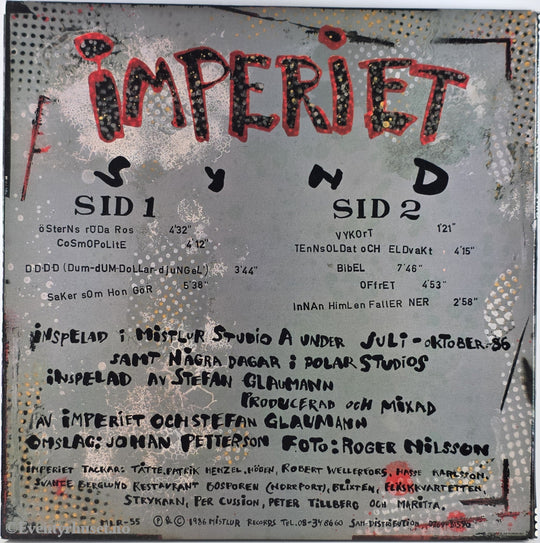 iMPERiET
SYND
SID 1
öSterNs röDa Ros 4'32"
CoSmOPoLitE 4'12"
D.D.D.D (Dum-dUM-DoLLar-djuNGeL') 3'44"
SaKer sOm Hon GöR 5'38"
SID 2
VYKOrT 1'21"
TEnnSOLDat oCH ELDvaKt 4'15"
BibEL 7'46"
OFfrET 4'53"
InNAn HimLen FallER NER 2'58"
iNSPELAD i MiSTLUR STUDiO A UNDER JULi-OKTOBER-86
SAMT NÅGRA DAGAR i POLAR STUDiOS
iNSPELAD AV STEFAN GLAUMANN
PRODUCERAD OCH MiXAD
AV iMPERiET OCH STEFAN GLAUMANN
OMSLAG: JOHAN PETTERSON FOTO: ROGER NiLSSON
iMPERiET TACKAR: TÅTTE, PATRiK HENZEL, HÖDEN, ROBERT WELLERFORS, HASSE KARLSSON,
SVANTE BERGLUND RESTAURANT BOSPOREN (NOREPORT), BLiXTEN, FLÄSKKVARTETTEN,
STRYKARN, PER CUSSiON, PETER TiLLBERG OCH MARiTTA.
MLR-55 Ⓟ & © 1986 MiSTLUR RECORDS TEL. 08-34 86 60 SAM-DiSTRiBUTiON
© Eventyrhuset.no